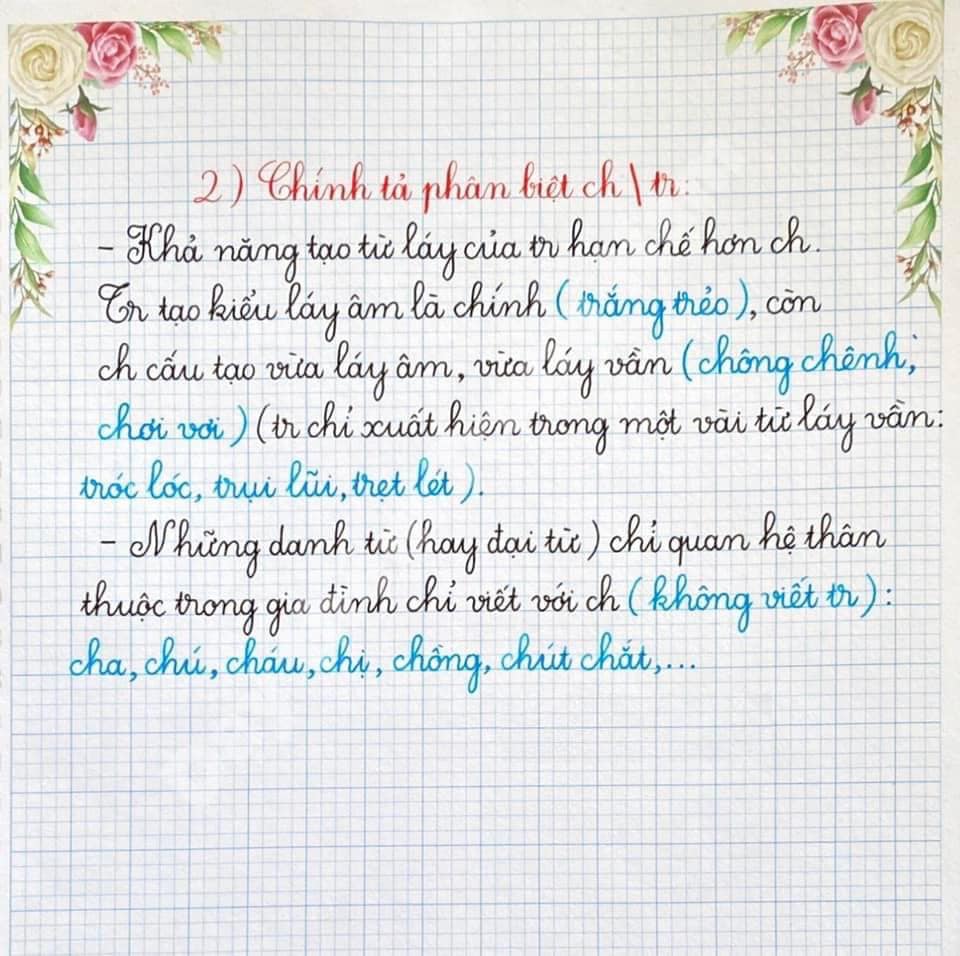 2) Chính tả phân biệt ch \ tr:
- Khả năng tạo từ láy của tr hạn chế hơn ch.
Tr tạo kiểu láy âm là chính (trắng trẻo), còn
ch cấu tạo vừa láy âm, vừa láy vần (chông chênh;
chơi vơi) (tr chỉ xuất hiện trong một vài từ láy vần:
tróc lóc, trụi lũi, trẹt lét).
- Những danh từ (hay đại từ) chỉ quan hệ thân
thuộc trong gia đình chỉ viết với ch (không viết tr):
cha, chú, cháu, chị, chồng, chút chắt,...